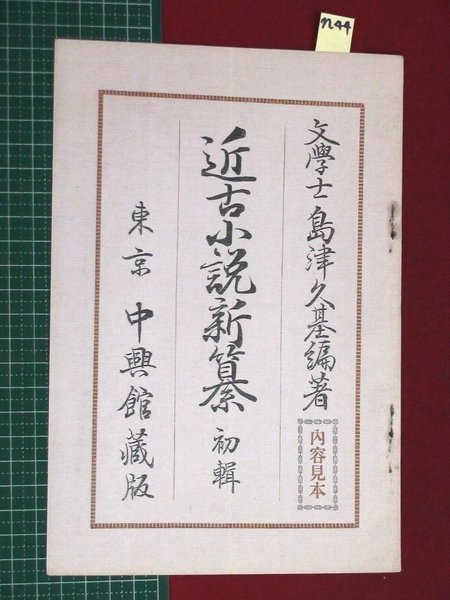 n44
文學士 島津久基編著
內容見本
近古小説新纂 初輯
東京 中興館藏版